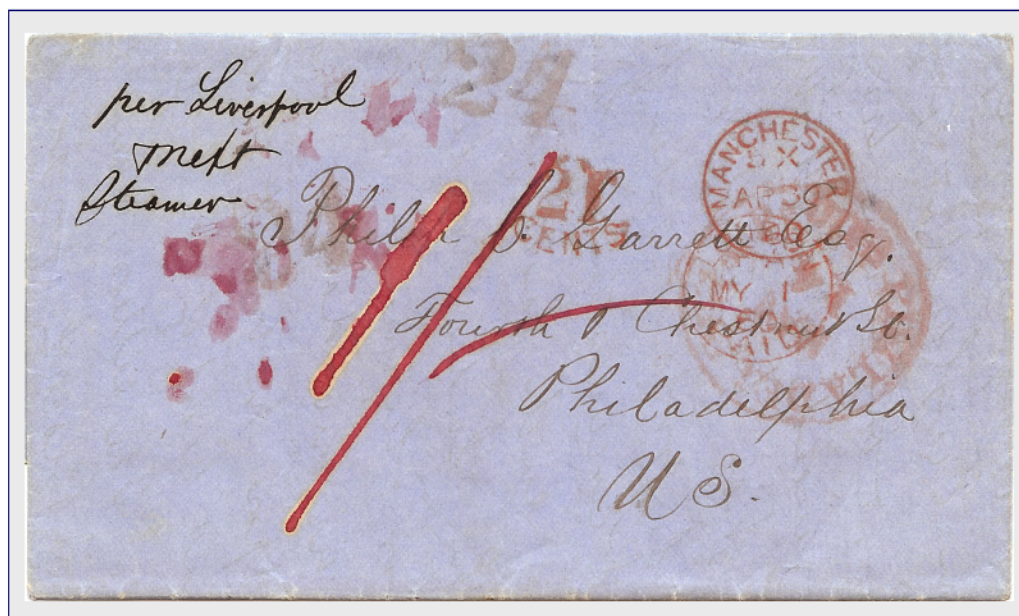 per Liverpool
next
Steamer
24
21
CENTS
MANCHESTER
5 X
AP 30
MY 1
PAID
1/
Philip C. Garrett Esq.
Fourth & Chestnut St.
Philadelphia
U S.